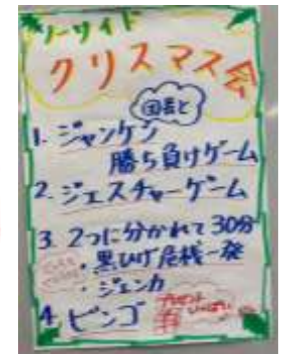 ノーサイド
クリスマス会
団長と
1. ジャンケン
勝ち負けゲーム
2. ジェスチャーゲーム
3. 2つに分かれて30分
・黒ひげ危機一発
・ジェンガ
4. ビンゴ
プレゼント
いっぱい